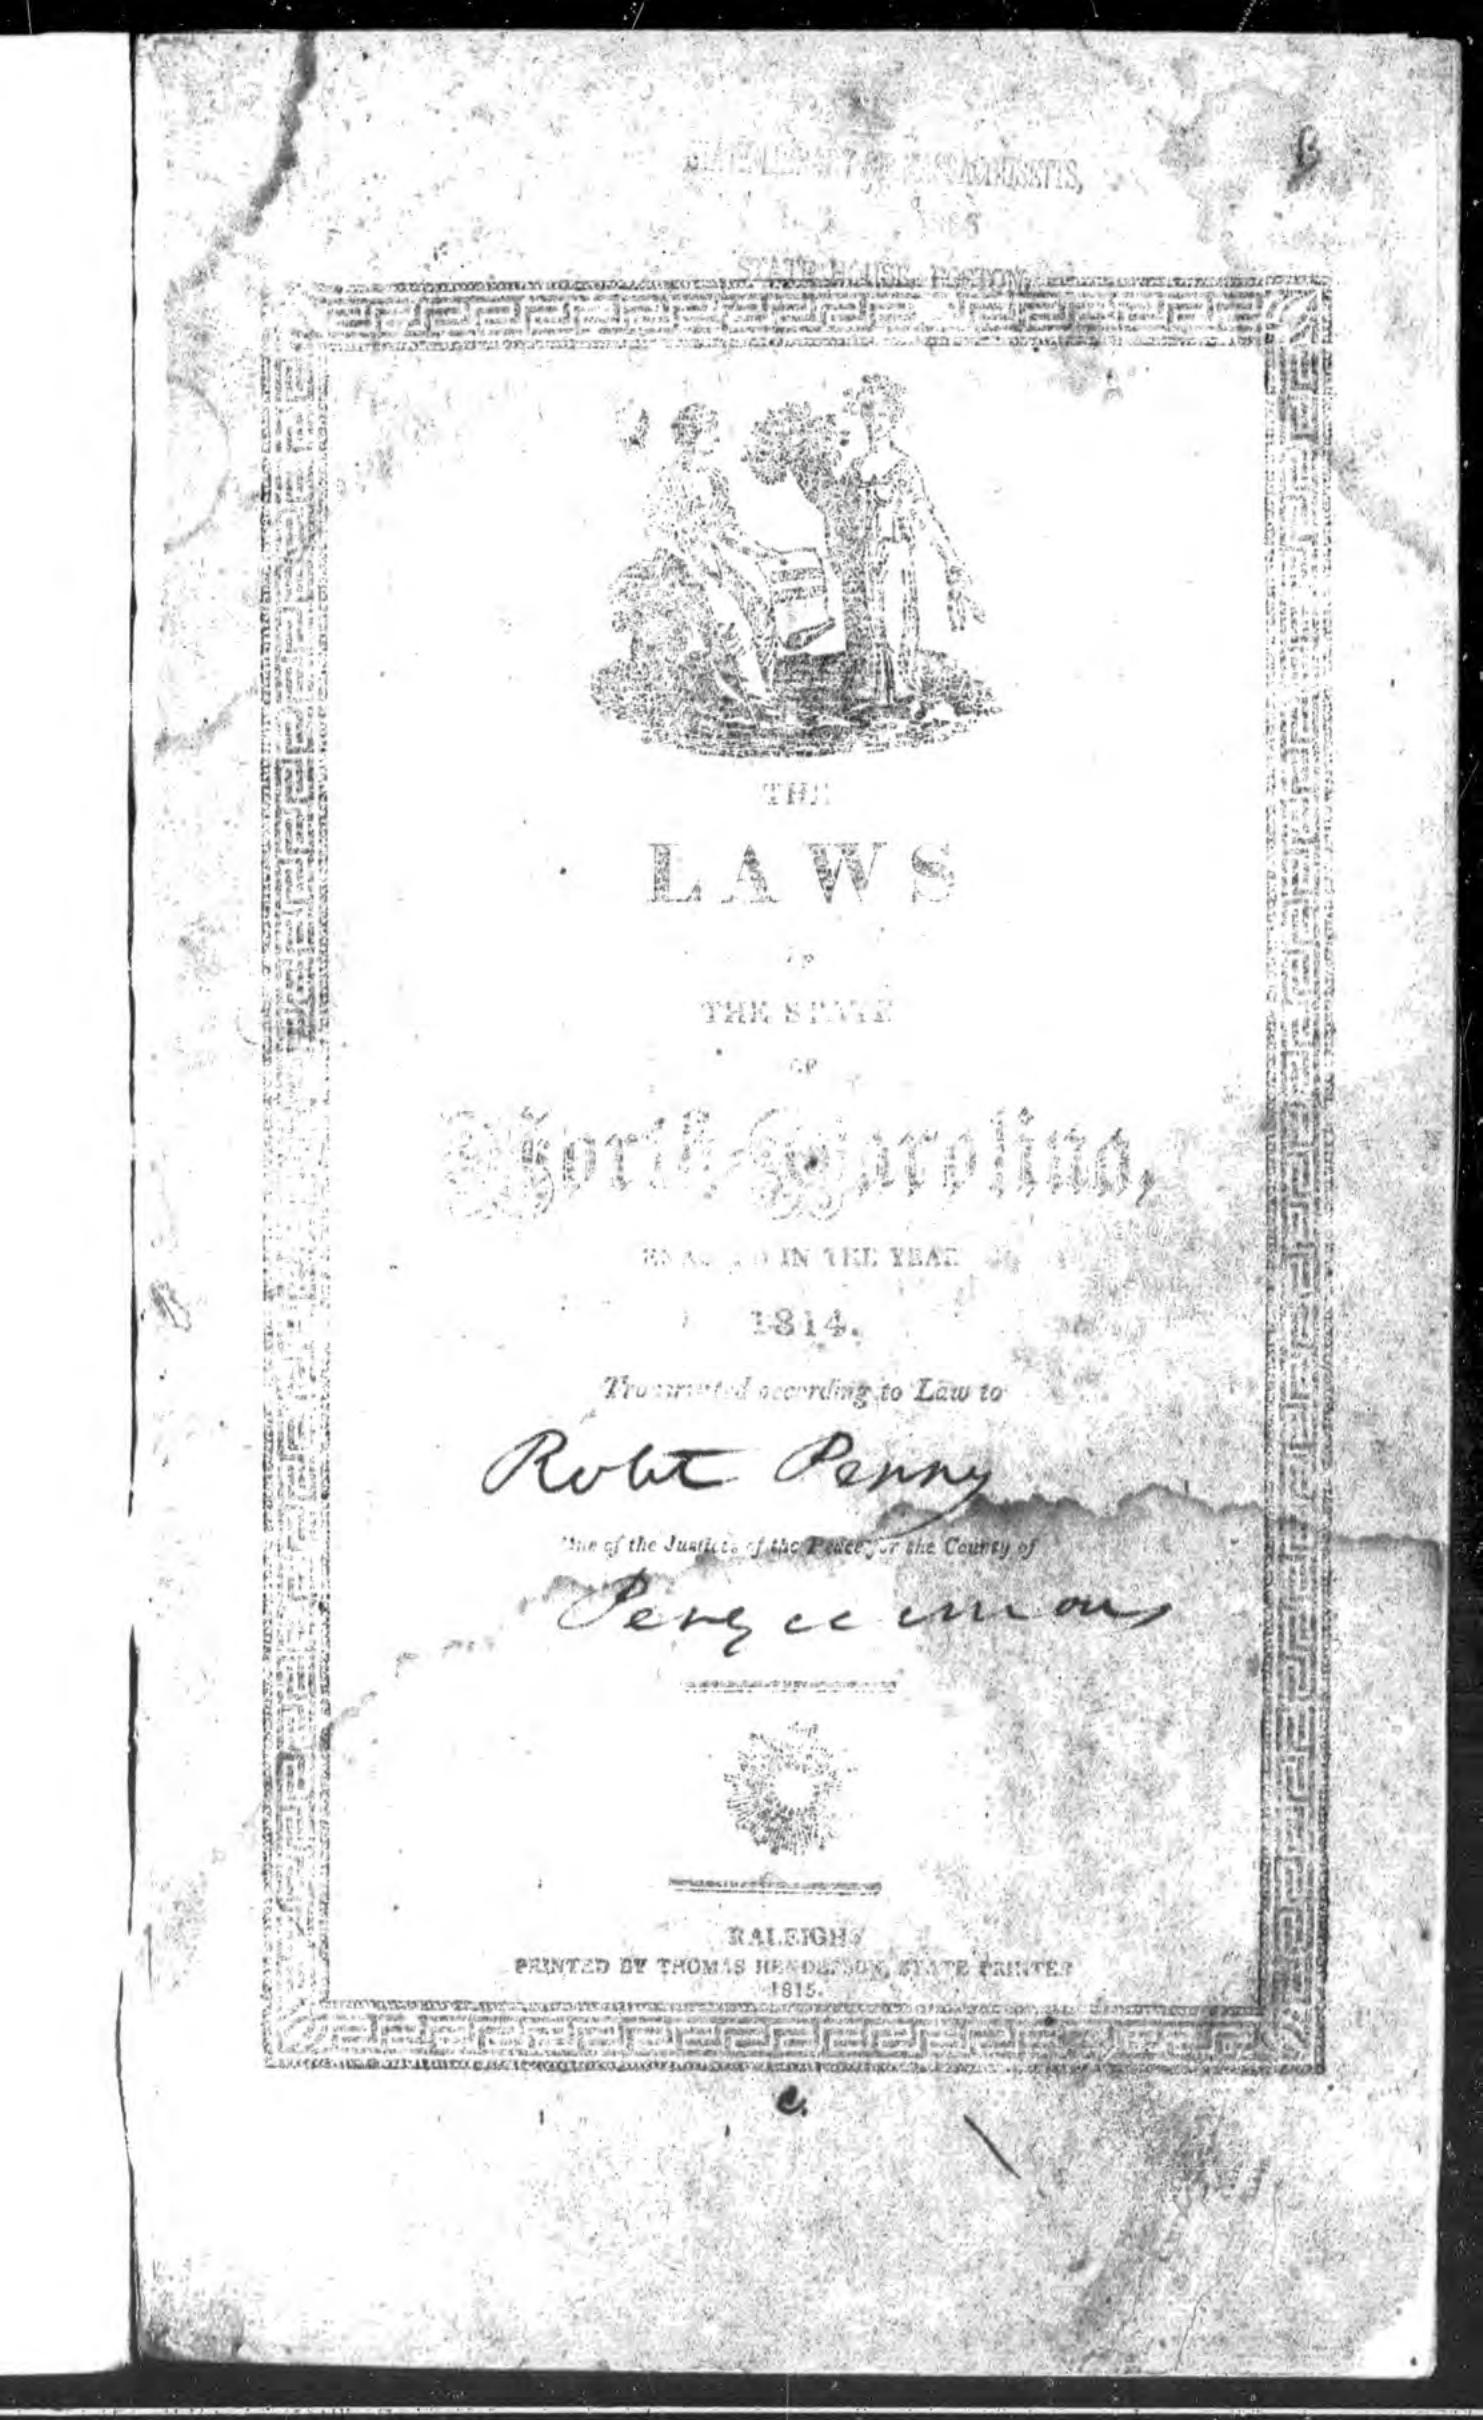 STATE LIBRARY OF MASSACHUSETTS,
STATE HOUSE, BOSTON.
THE
LAWS
OF
THE STATE
OF
North-Carolina,
ENACTED IN THE YEAR
1814.
Transmitted according to Law to
Robt Penny
One of the Justices of the Peace for the County of
Perquimons
RALEIGH:
PRINTED BY THOMAS HENDERSON, STATE PRINTER
1815.